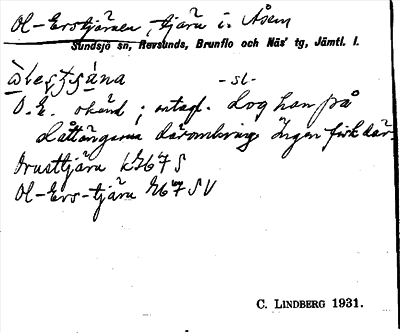 Ol-Erstjärnen, tjärn i Åsen
Sundsjö sn, Revsunds, Brunflo och Näs' tg, Jämtl. l.
-sl-
O.E. okänd ; antagl. dog han på
slåttängarna däromkring. Ingen fisk där.
Grusttjärn k 767 S
Ol-Ers-tjärn 767 SV
C. LINDBERG 1931.